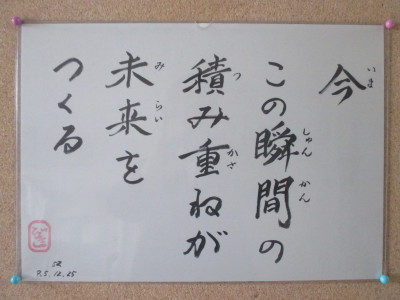 今
この瞬間の
積み重ねが
未来を
つくる
いま
しゅん かん
つ かさ
み らい
R.5.12.25